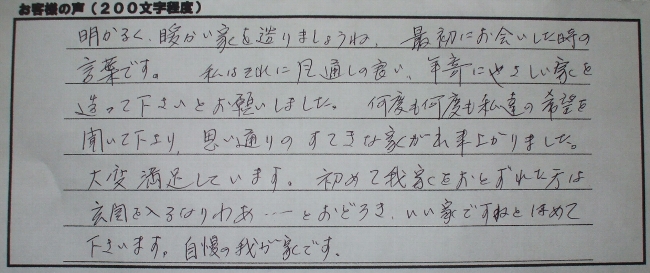 お客様の声（200文字程度）
明かるく、暖かい家を造りましょうね、最初にお会いした時の
言葉です。私はそれに風通しの良い、年寄にやさしい家を
造って下さいとお願いしました。何度も何度も私達の希望を
聞いて下さり、思い通りのすてきな家が出来上がりました。
大変満足しています。初めて我家をおとずれた方は
玄関を入るなりわあ……とおどろき、いい家ですねとほめて
下さいます。自慢の我が家です。